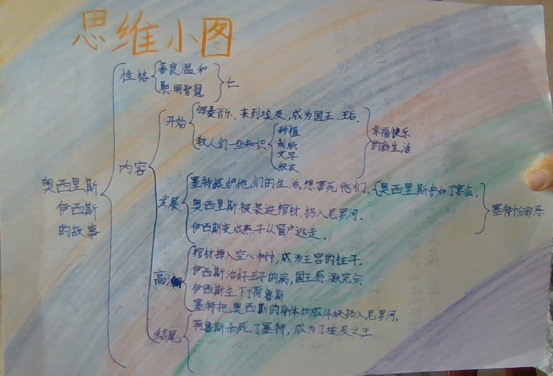 思维小图
性格
善良温和
聪明智慧
仁
奥西里斯
伊西斯
的故事
内容
开始
弹奏音乐,来到埃及,成为国王、王后。
教人们一些知识
种植
造纸
文字
织衣
幸福快乐
的新生活
发展
塞特嫉妒他们的生活,想害死他们。
奥西里斯参加了宴会。
奥西里斯被装进棺材,扔入尼罗河。
伊西斯变成燕子从窗户逃走。
塞特十分邪恶
高
棺材撞入空心树中,成为王宫的柱子。
伊西斯治好王子的病,国王
伊西斯生下荷鲁斯
塞特把奥西斯的身体切成块扔入尼罗河。
结尾
荷鲁斯杀死了塞特,成为了埃及之王